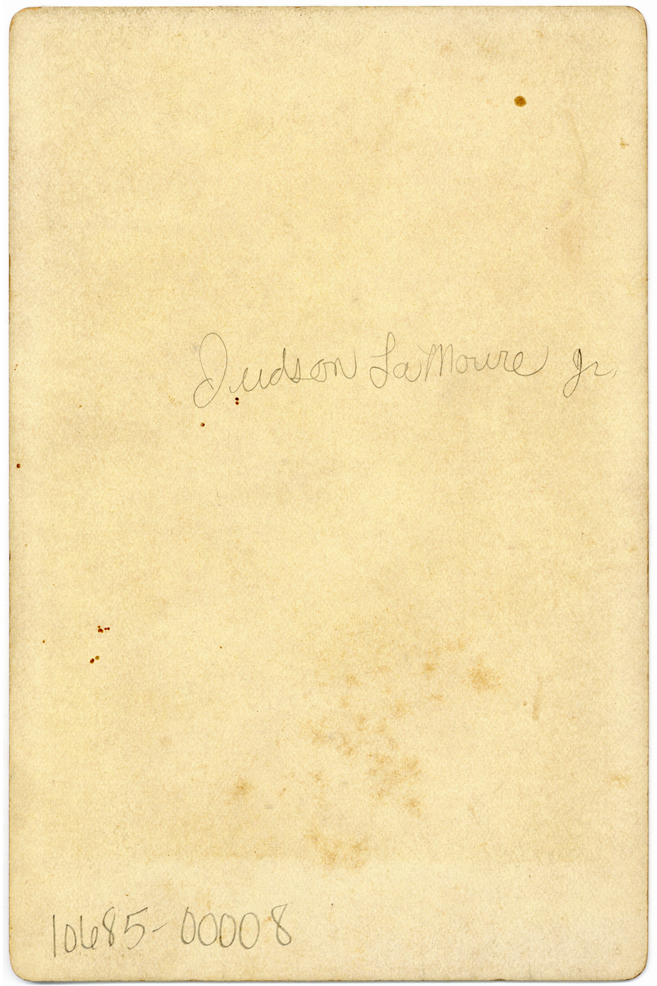 Judson LaMoure Jr.
10685-00008